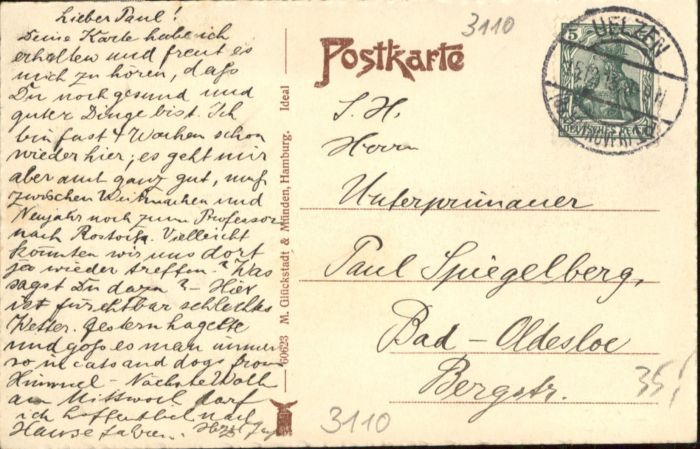 Lieber Paul!
Deine Karte habe ich
erhalten und freut es
mich zu hören, daſs
Du noch gesund und
guter Dinge bist. Ich
bin fast 4 Wochen schon
wieder hier; es geht mir
aber ganz gut, muſs
zwischen Weihnachten und
Neujahr noch zum Professor
nach Rostock. Vielleicht
könnten wir uns dort
ja wieder treffen? Was
sagst Du dazu? – Hier
ist furchtbar schlechtes
Wetter. Gestern hagelte
und goſs es man immer
so in cats and dogs from
Himmel – Nächste Woche
am Mittwoch darf
ich hoffentlich nach
Hause fahren.
3110
Postkarte
5
DEUTSCHES REICH
UELZEN
S. H.
Herrn
Unterprimaner
Paul Spiegelberg,
Bad-Oldesloe
Bergstr.
35,
3110
60623 M. Glückstadt & Münden, Hamburg. Ideal